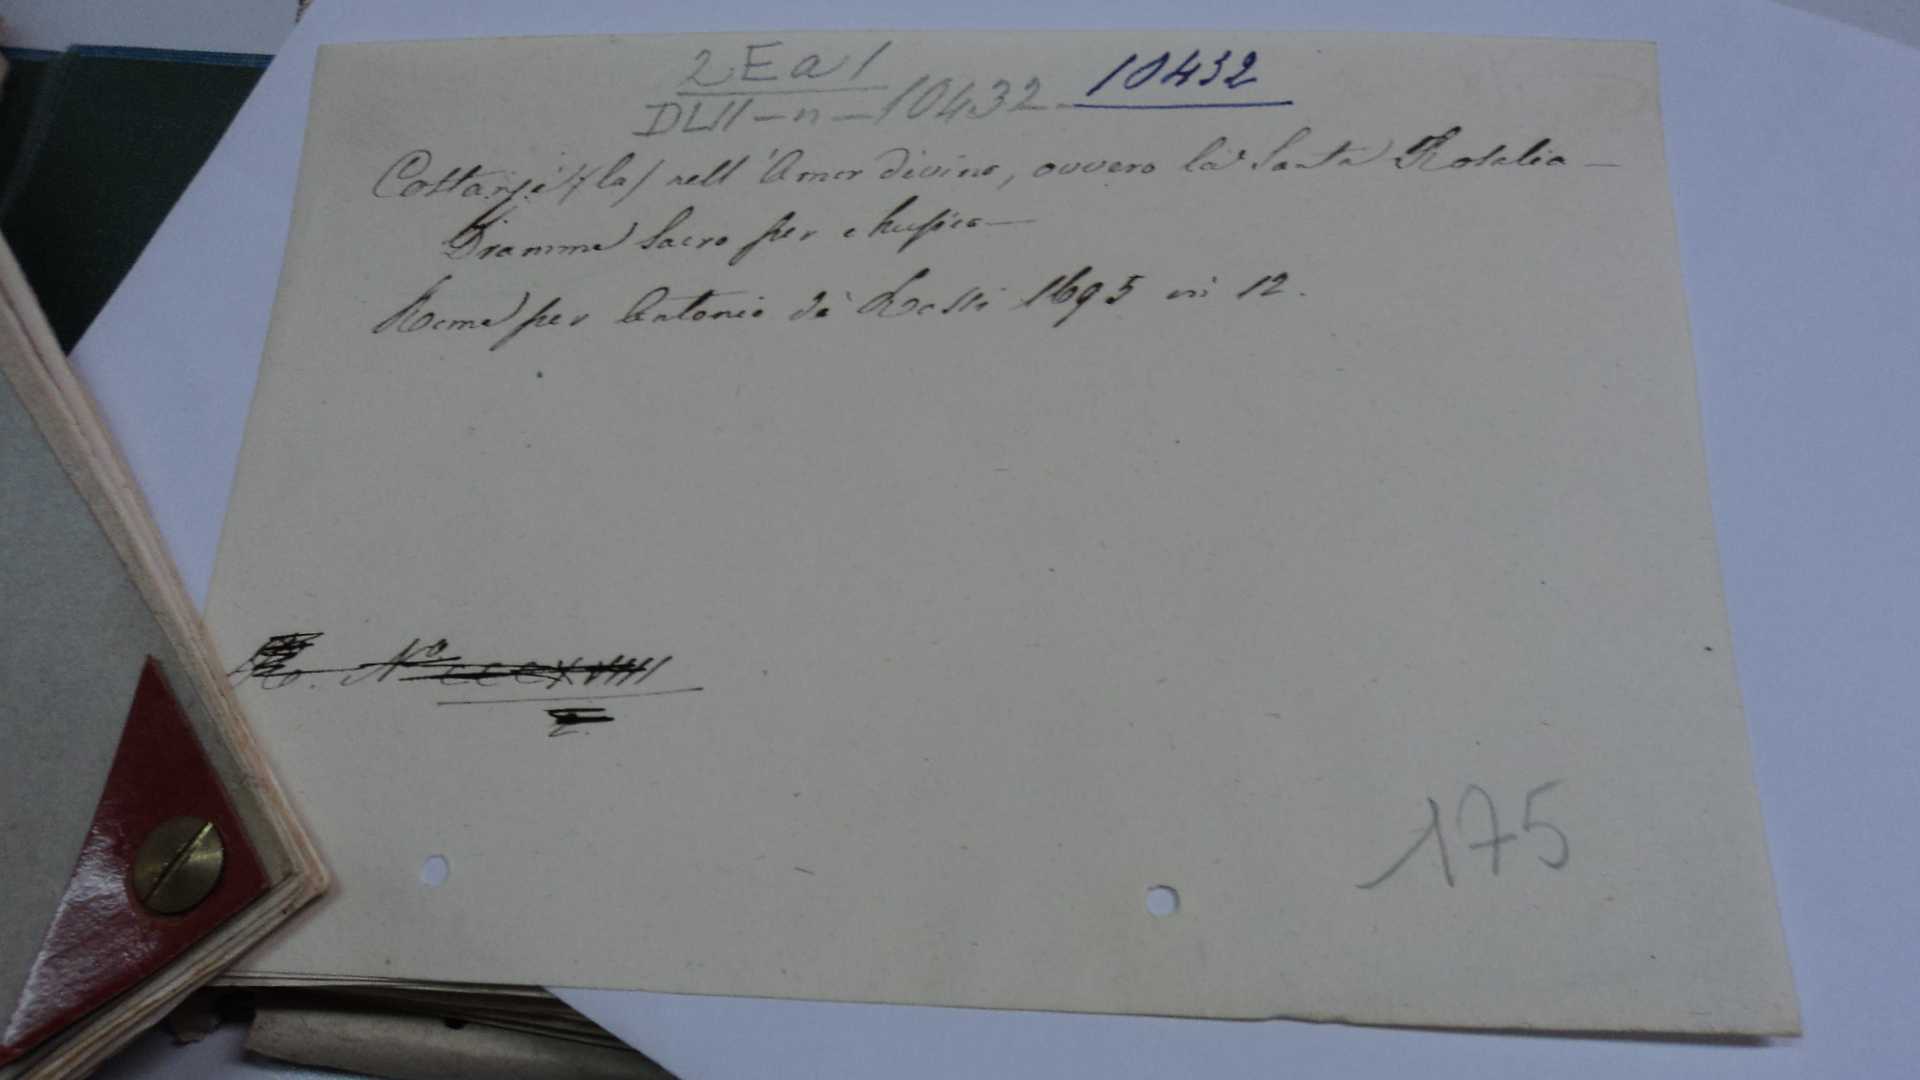 2 E a 1
DLII-n-10432 - 10432
Costanza (la) nell'Amor divino, ovvero la Santa Rosalia -
Dramma Sacro per Musica -
Roma per Antonio de Rossi 1695 in 12.
No CCCXVIIII
2.
175